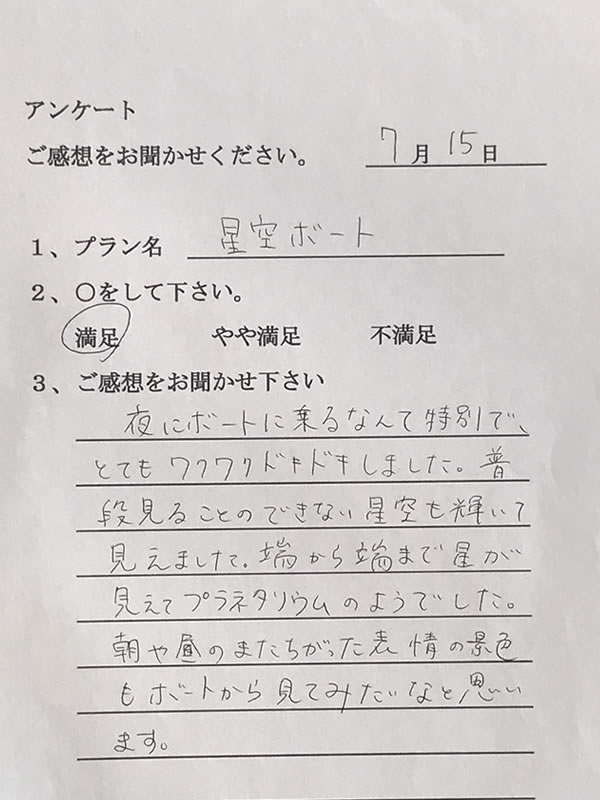 アンケート
ご感想をお聞かせください。 7月15日
1、プラン名 星空ボート
2、〇をして下さい。
満足 やや満足 不満足
3、ご感想をお聞かせ下さい
夜にボートに乗るなんて特別で、
とてもワクワクドキドキしました。普
段見ることのできない星空も輝いて
見えました。端から端まで星が
見えてプラネタリウムのようでした。
朝や昼のまたちがった表情の景色
もボートから見てみたいなと思い
ます。